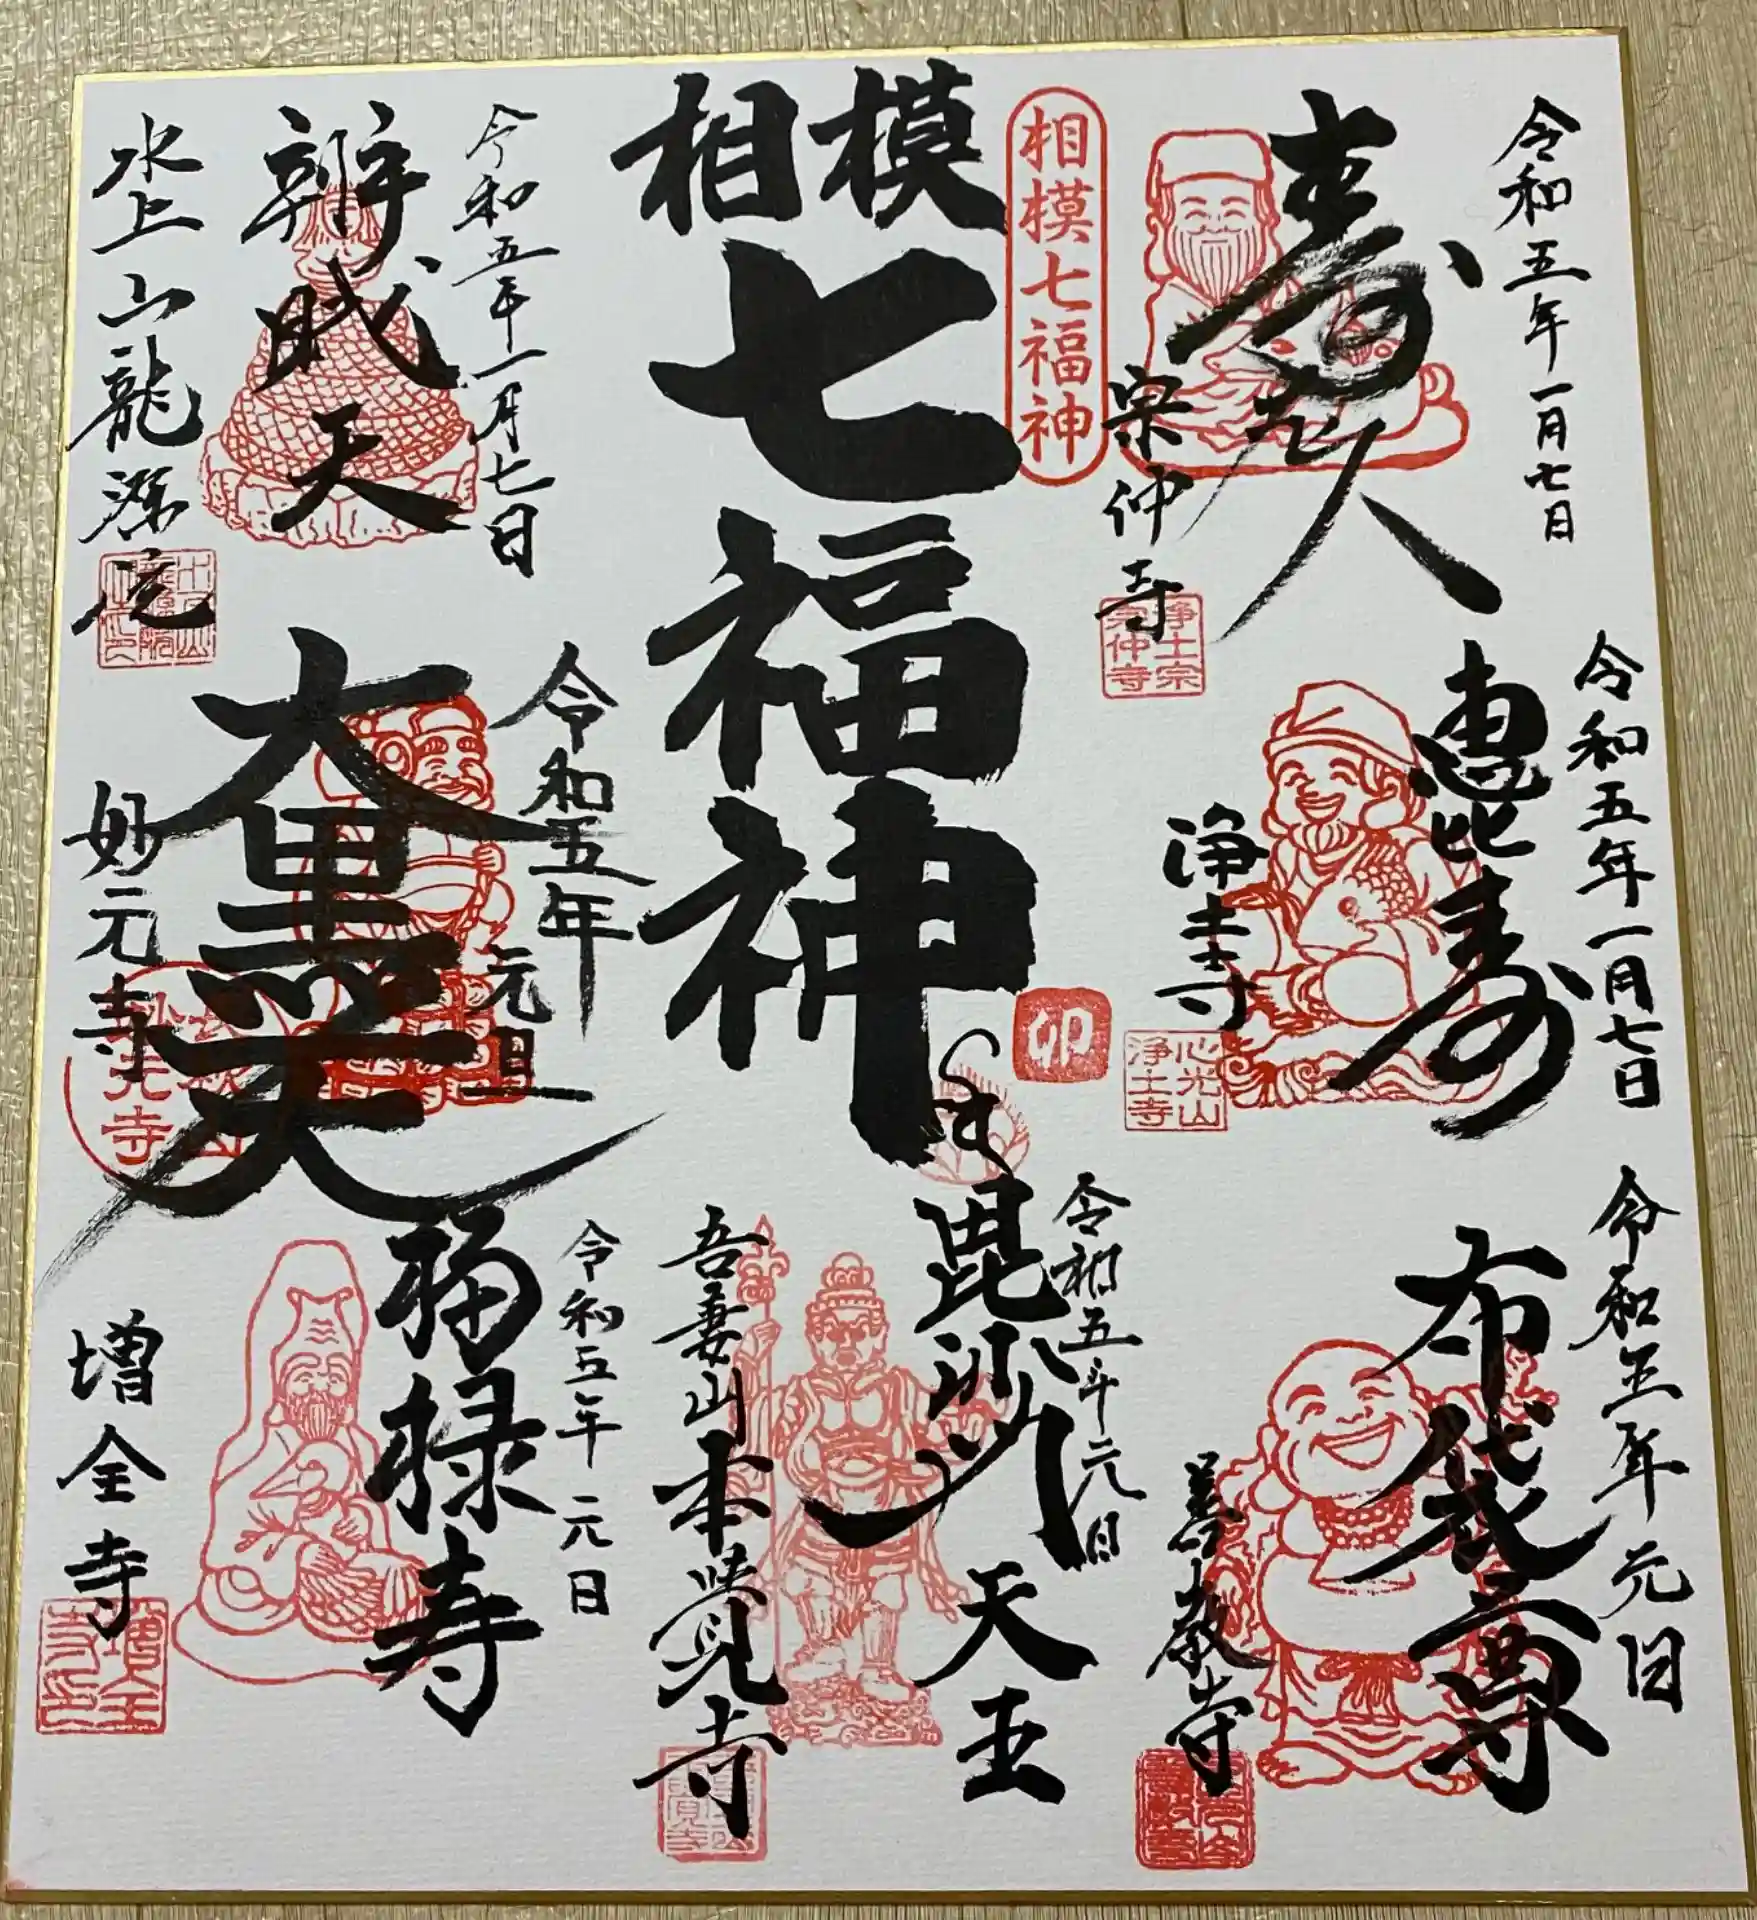 令和五年一月七日
寿老人
宗仲寺
浄土宗
宗仲寺
相模七福神
相模
七福神
令和五年一月七日
辨戝天
水上山龍源院
令和五年一月七日
恵比寿
浄土寺
心光山
浄土寺
卯
令和五年
元旦
大黒天
妙元寺
令和五年元日
布袋尊
善教寺
令和五年元日
毘沙門天王
吾妻山本覚寺
令和五年元日
福禄寿
増全寺